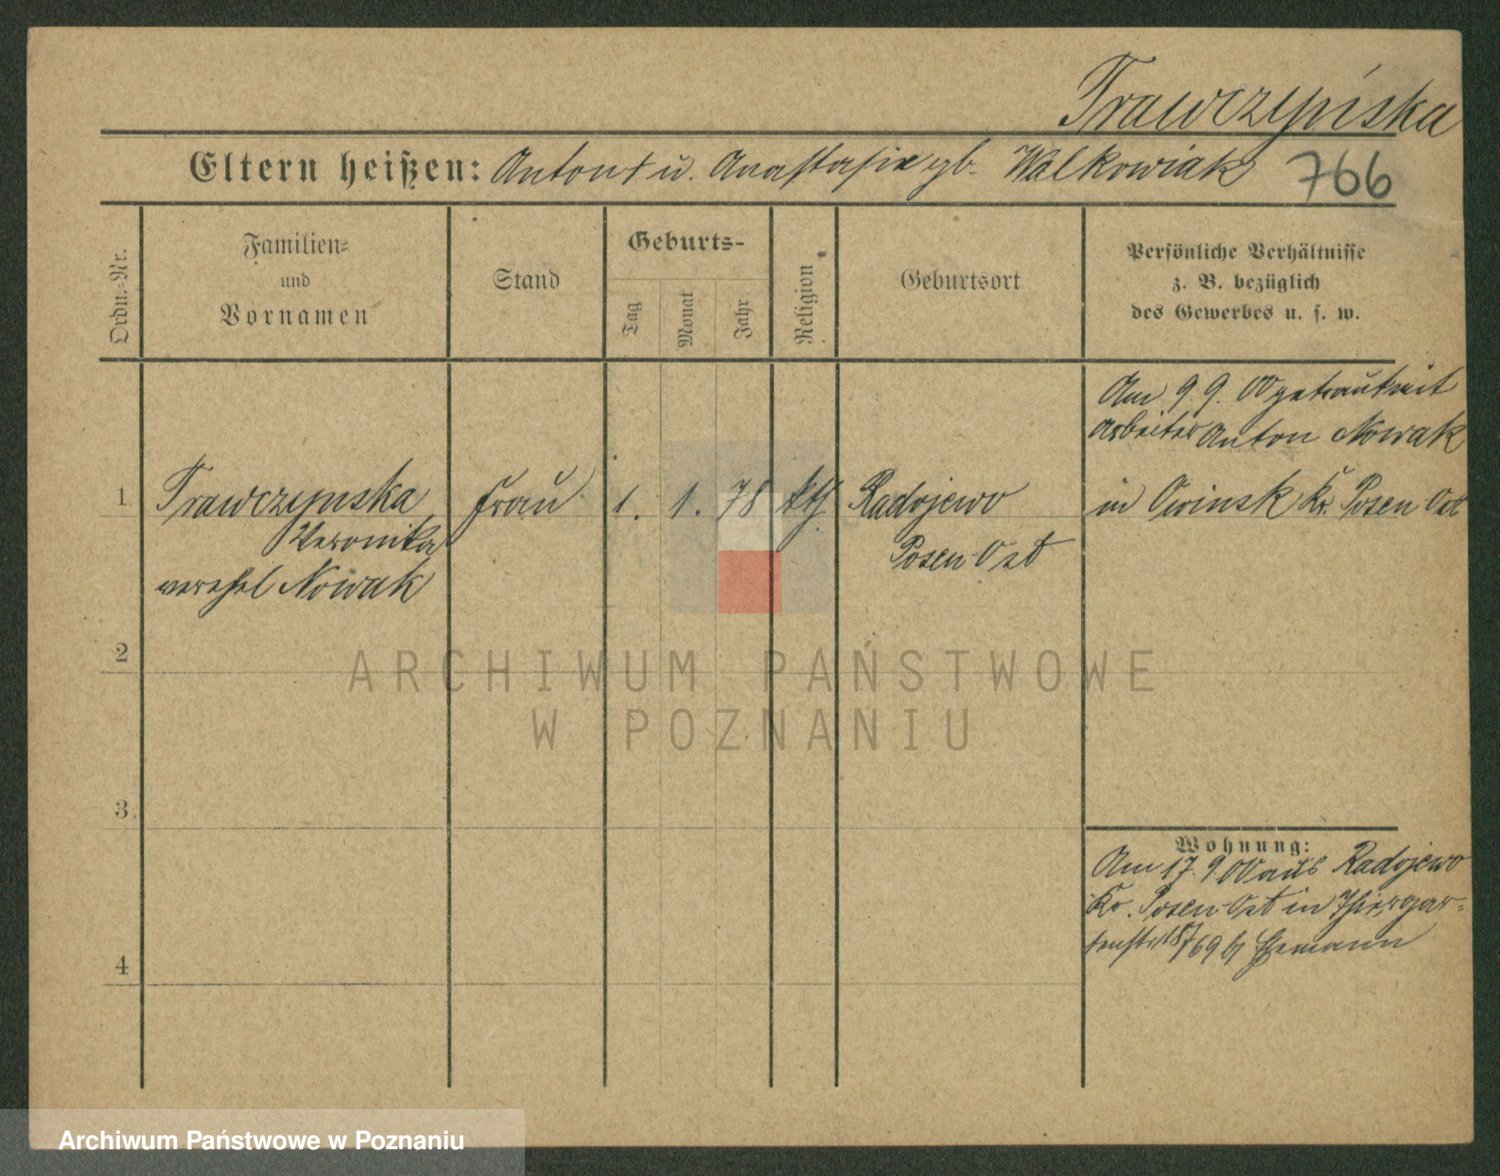 Trawczyńska
Eltern heißen: Anton † u. Anastasia gb. Walkowiak 766
Ordn.-Nr.
Familien-
und
Vornamen
Stand
Geburts-
Tag
Monat
Jahr
Religion
Geburtsort
Persönliche Verhältnisse
z. B. bezüglich
des Gewerbes u. s. w.
1 Trawczynska
Veronika
verehel Nowak
Frau
1. 1. 78
kth
Radojewo
Posen Ost
Am 9. 9. 00 getraut mit
Arbeiter Anton Nowak
in Owinsk Kr. Posen Ost
2
3
4
Wohnung:
Am 17. 9. 00 aus Radojewo
Kr. Posen Ost in Thiergar-
tenstr 69 b/ Ehemann
ARCHIWUM PAŃSTWOWE
W POZNANIU
Archiwum Państwowe w Poznaniu